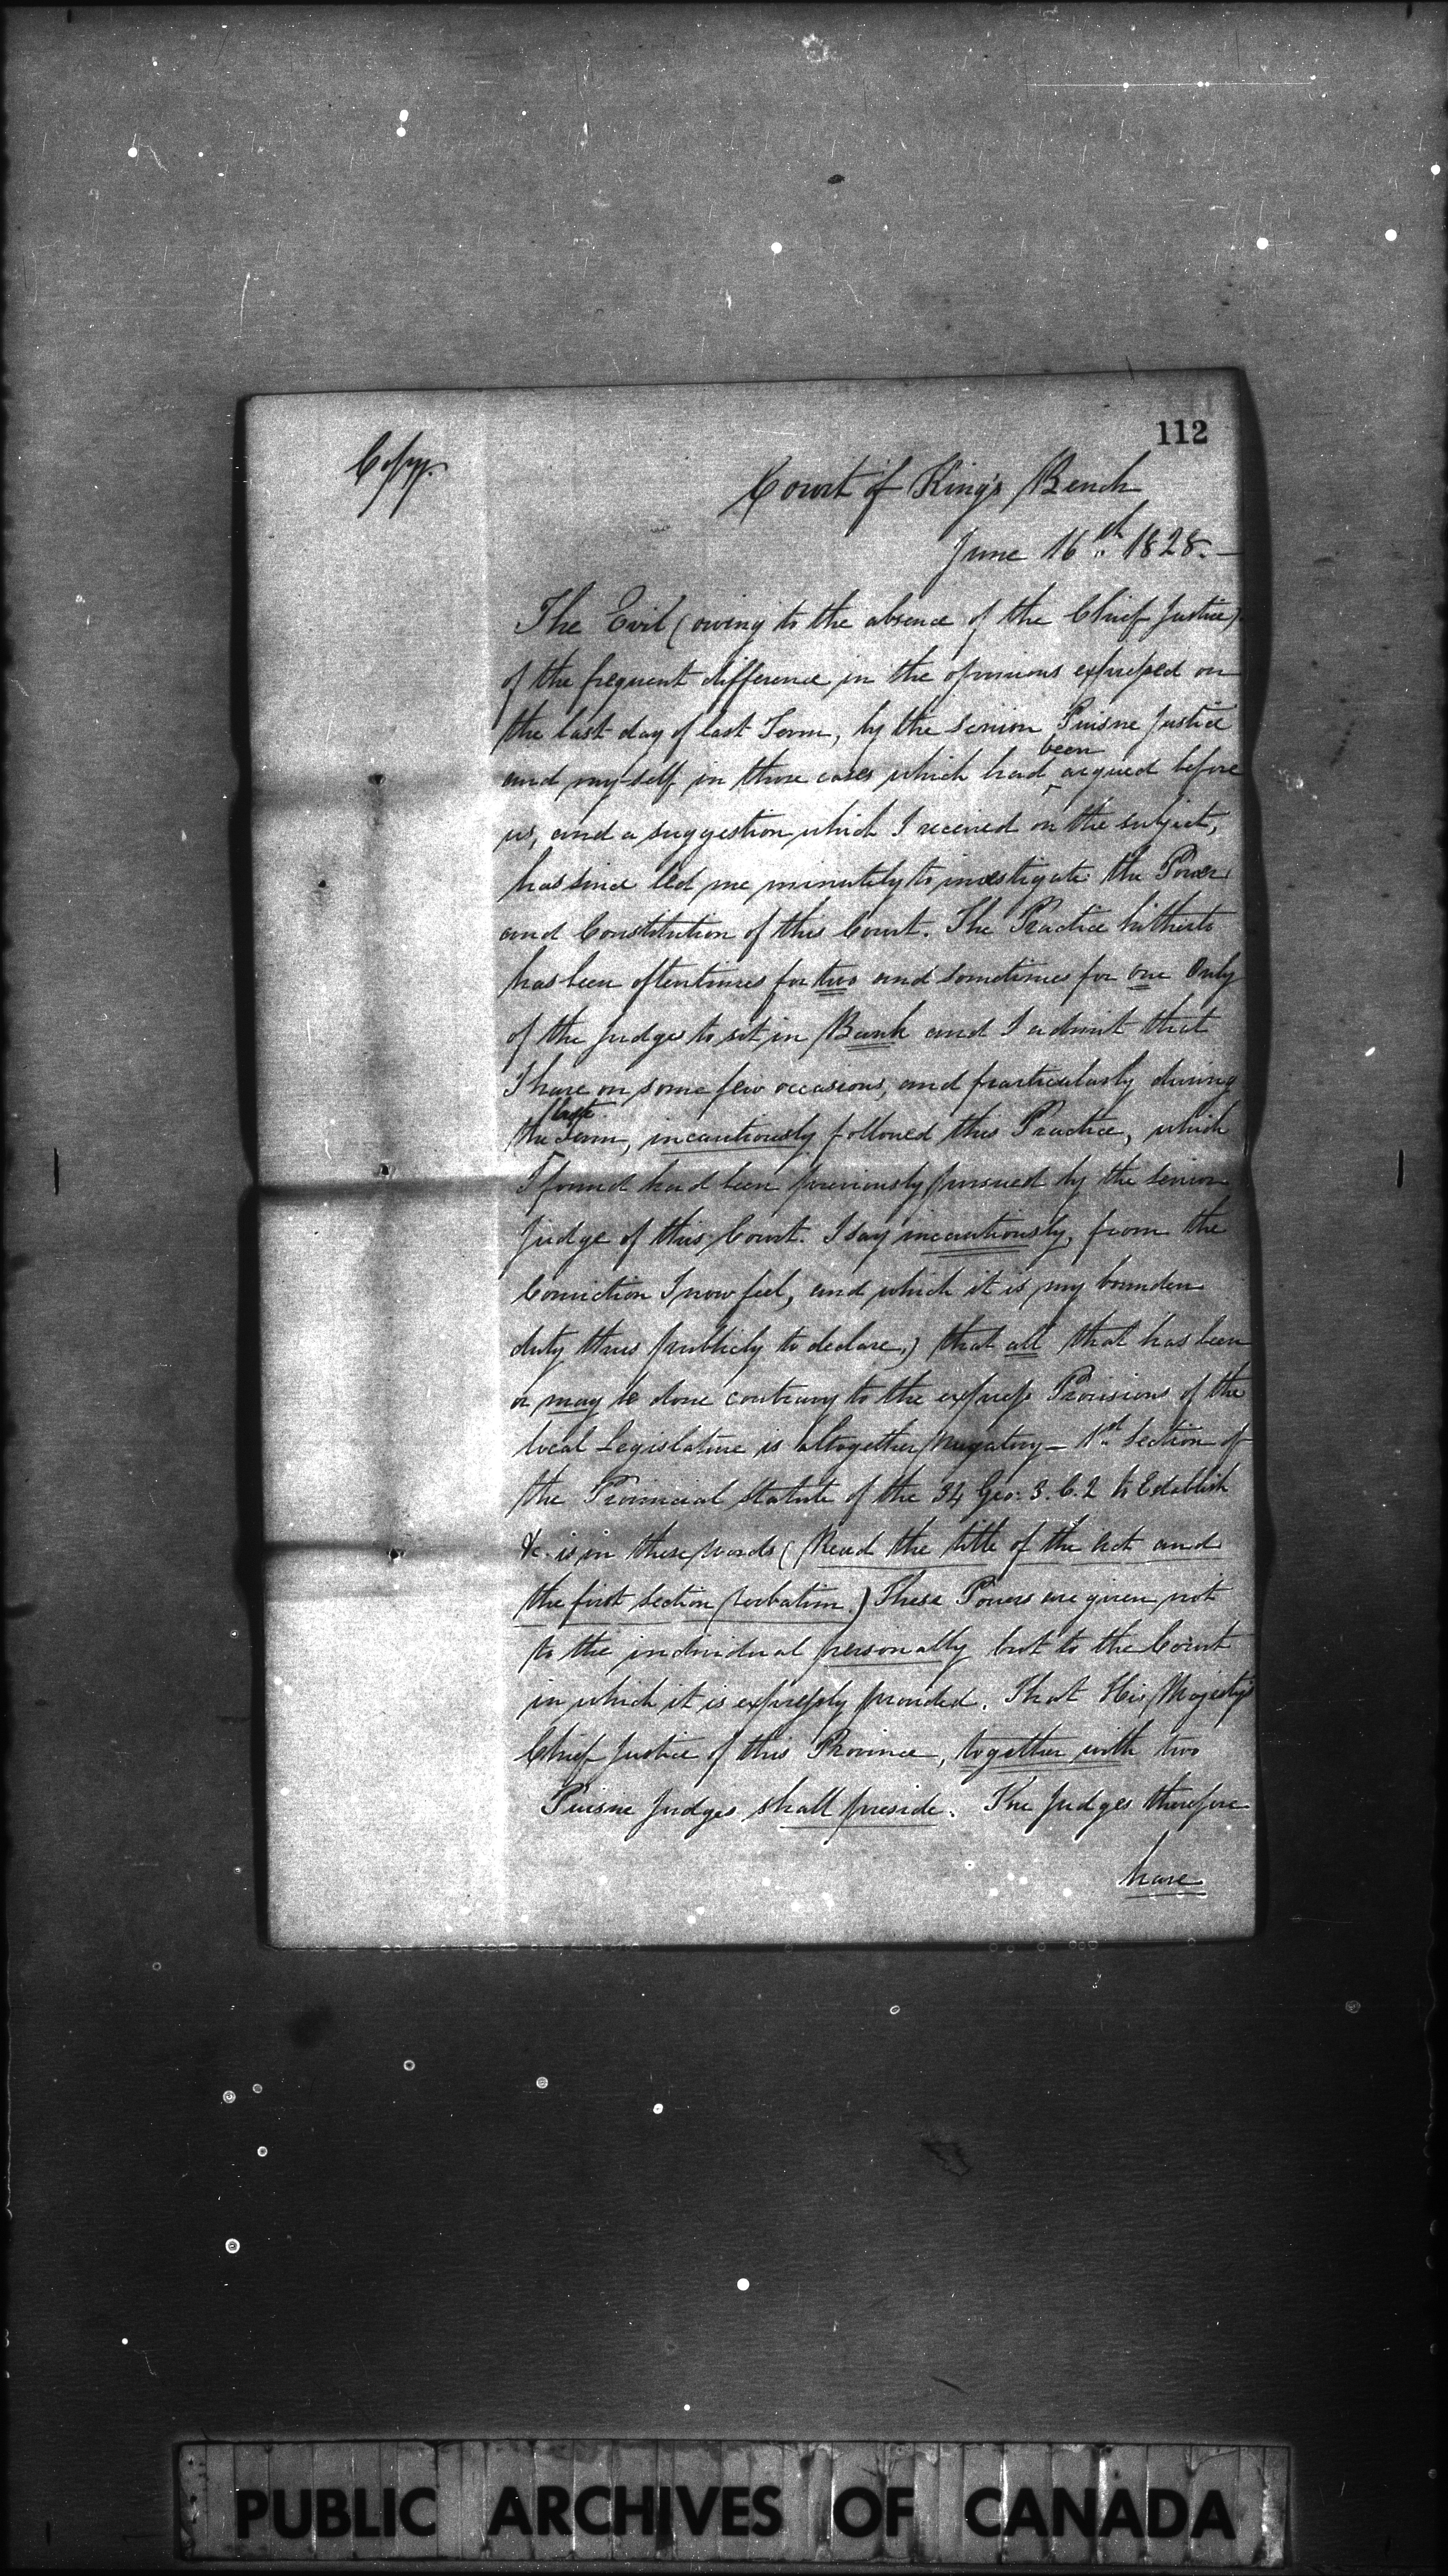 112
Copy.
Court of King's Bench
June 16th 1828.—
The Evil (owing to the absence of the Chief Justice)
of the frequent difference in the opinions expressed on
the last day of last Term, by the Senior Puisne Justice
and my-self in those cases which had been argued before
us, and a suggestion which I received on the subject,
has since led me minutely to investigate the Power
and Constitution of this Court. The Practice hitherto
has been oftentimes for two and sometimes for one Only
of the Judges to sit in Bank and I admit that
I have on some few occasions, and particularly during
the last Term, incautiously followed this Practice, which
I found had been previously pursued by the Senior
Judge of this Court. I say incautiously, from the
Conviction I now feel, and which it is my bounden
duty thus publicly to declare,) that all that has been
or may be done contrary to the express Provisions of the
local Legislature is altogether nugatory — 1st Section of
the Provincial Statute of the 34 Geo: 3. C. 2 to Establish
&c. is in these words (Read the title of the Act and
the first Section verbatim.) These Powers are given not
to the individual personally but to the Court
in which it is expressly provided. That His Majesty's
Chief Justice of this Province, together with two
Puisne Judges shall preside. The Judges therefore
have
PUBLIC ARCHIVES OF CANADA